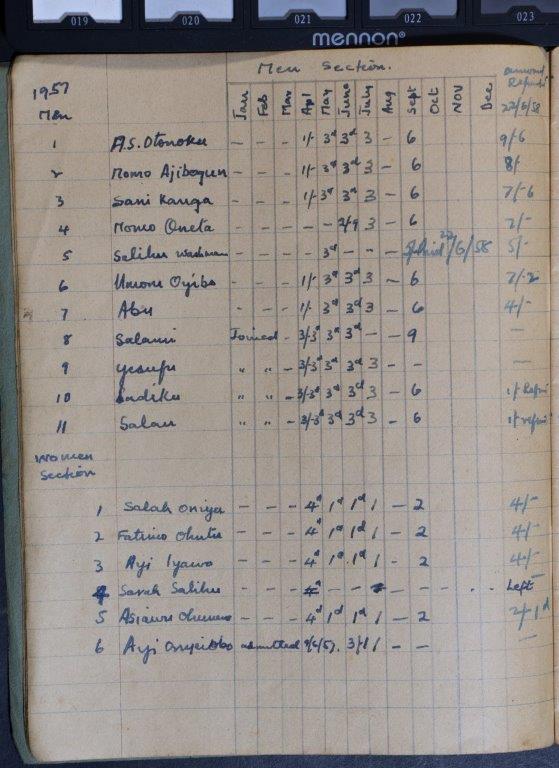 019 020 021 022 023
mennon®
Men Section.
1957 Jan Feb Mar Apl May June July Aug Sept Oct NOV Dec amount Refund 22/6/58
Men
1 A.S. Otonoku - - - 1/- 3d 3d 3 - 6 9/6
2 Momo Ajibogun - - - 1/- 3d 3d 3 - 6 8/
3 Sani Kanga - - - 1/- 3d 3d 3 - 6 7/-6
4 Momo Oneta - - - - - 2/9 3 - 6 2/-
5 Salihu - - - - 3d - - - Paid 22/6/58 5/-
6 Umoru Oyibo - - - 1/- 3d 3d 3 - 6 7/-2
7 Abu - - - 1/- 3d 3d 3 - 6 4/-
8 Salami Joined - 3/3d 3d 3d - - 9 -
9 Yesufu " " - 3/3d 3d 3d 3 - - -
10 Sadiku " " - 3/3d 3d 3d 3 - 6 1/
11 Salau " " - 3/3d 3d 3d 3 - 6 1/
Women
Section
1 Salah Oniya - - - 4d 1d 1d 1 - 2 4/-
2 Fatimo - - - 4d 1d 1d 1 - 2 4/-
3 Ayi Iyawo - - - 4d 1d 1d 1 - 2 4/-
4 Sarah Salihu - - - - - - - - - Left
5 Asiawu - - - 4d 1d 1d 1 - 2 2/-1d
6 Ayi admitted 9/6/57. 3/1 1 - - -